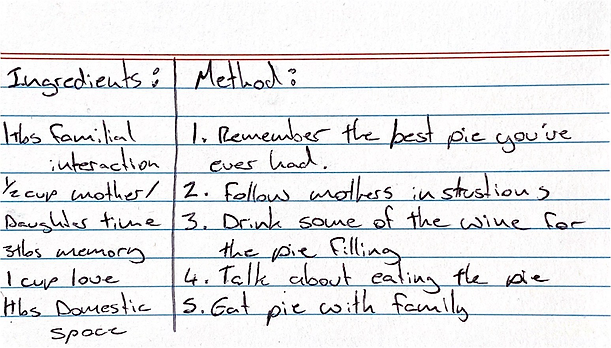 Ingredients:
1tbs familial
interaction
1/2 cup mother/
Daughter time
3tbs memory
1 cup love
1tbs Domestic
space
Method:
1. Remember the best pie you've
ever had.
2. Follow mothers instustions
3. Drink some of the wine for
the pie filling
4. Talk about eating the pie
5. Eat pie with family